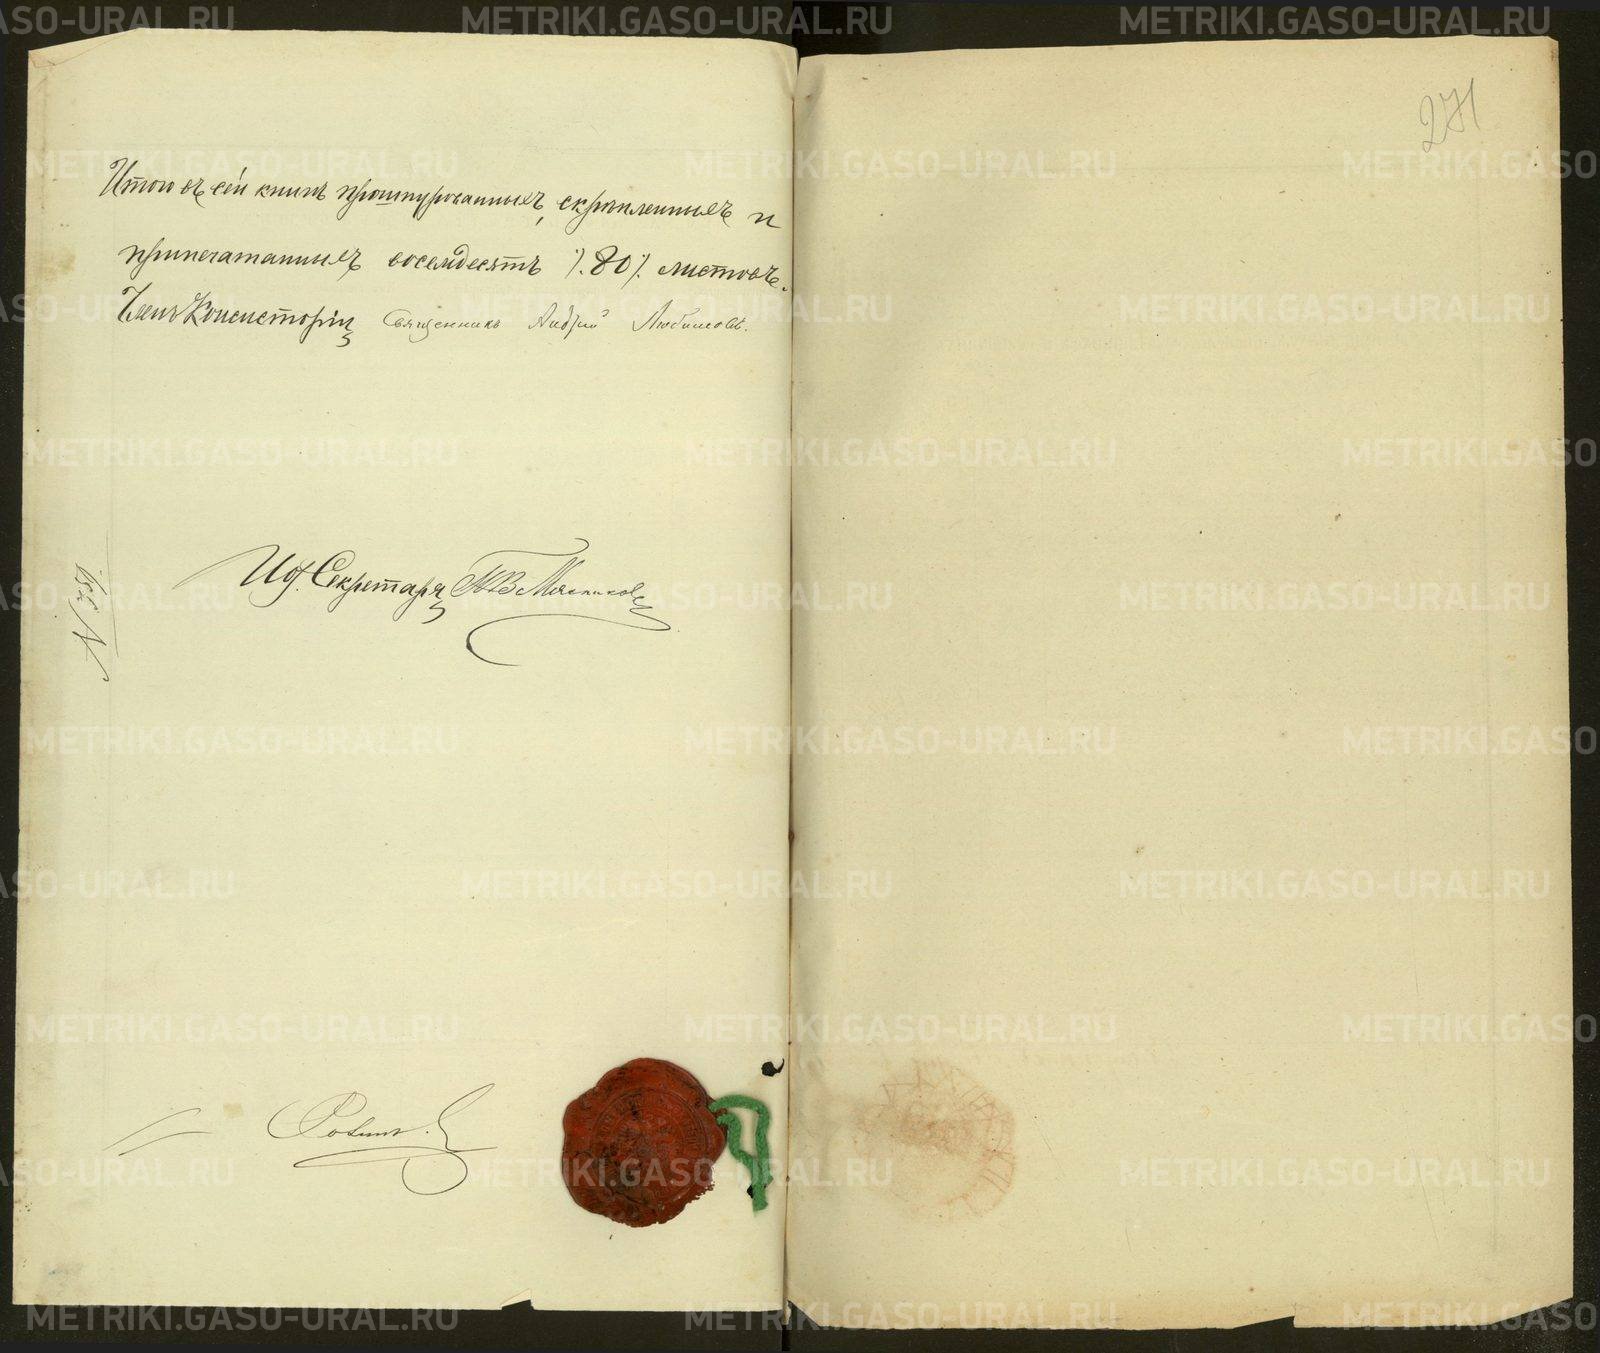 271
Итого въ сей книгѣ прошнурованныхъ, скрѣпленныхъ и
припечатанныхъ восемдесятъ ./.80./. листовъ.
Членъ Консисторіи Священникъ Андрей Любимовъ.
И.об. Секретаря Мясников
№
METRIKI.GASO-URAL.RU